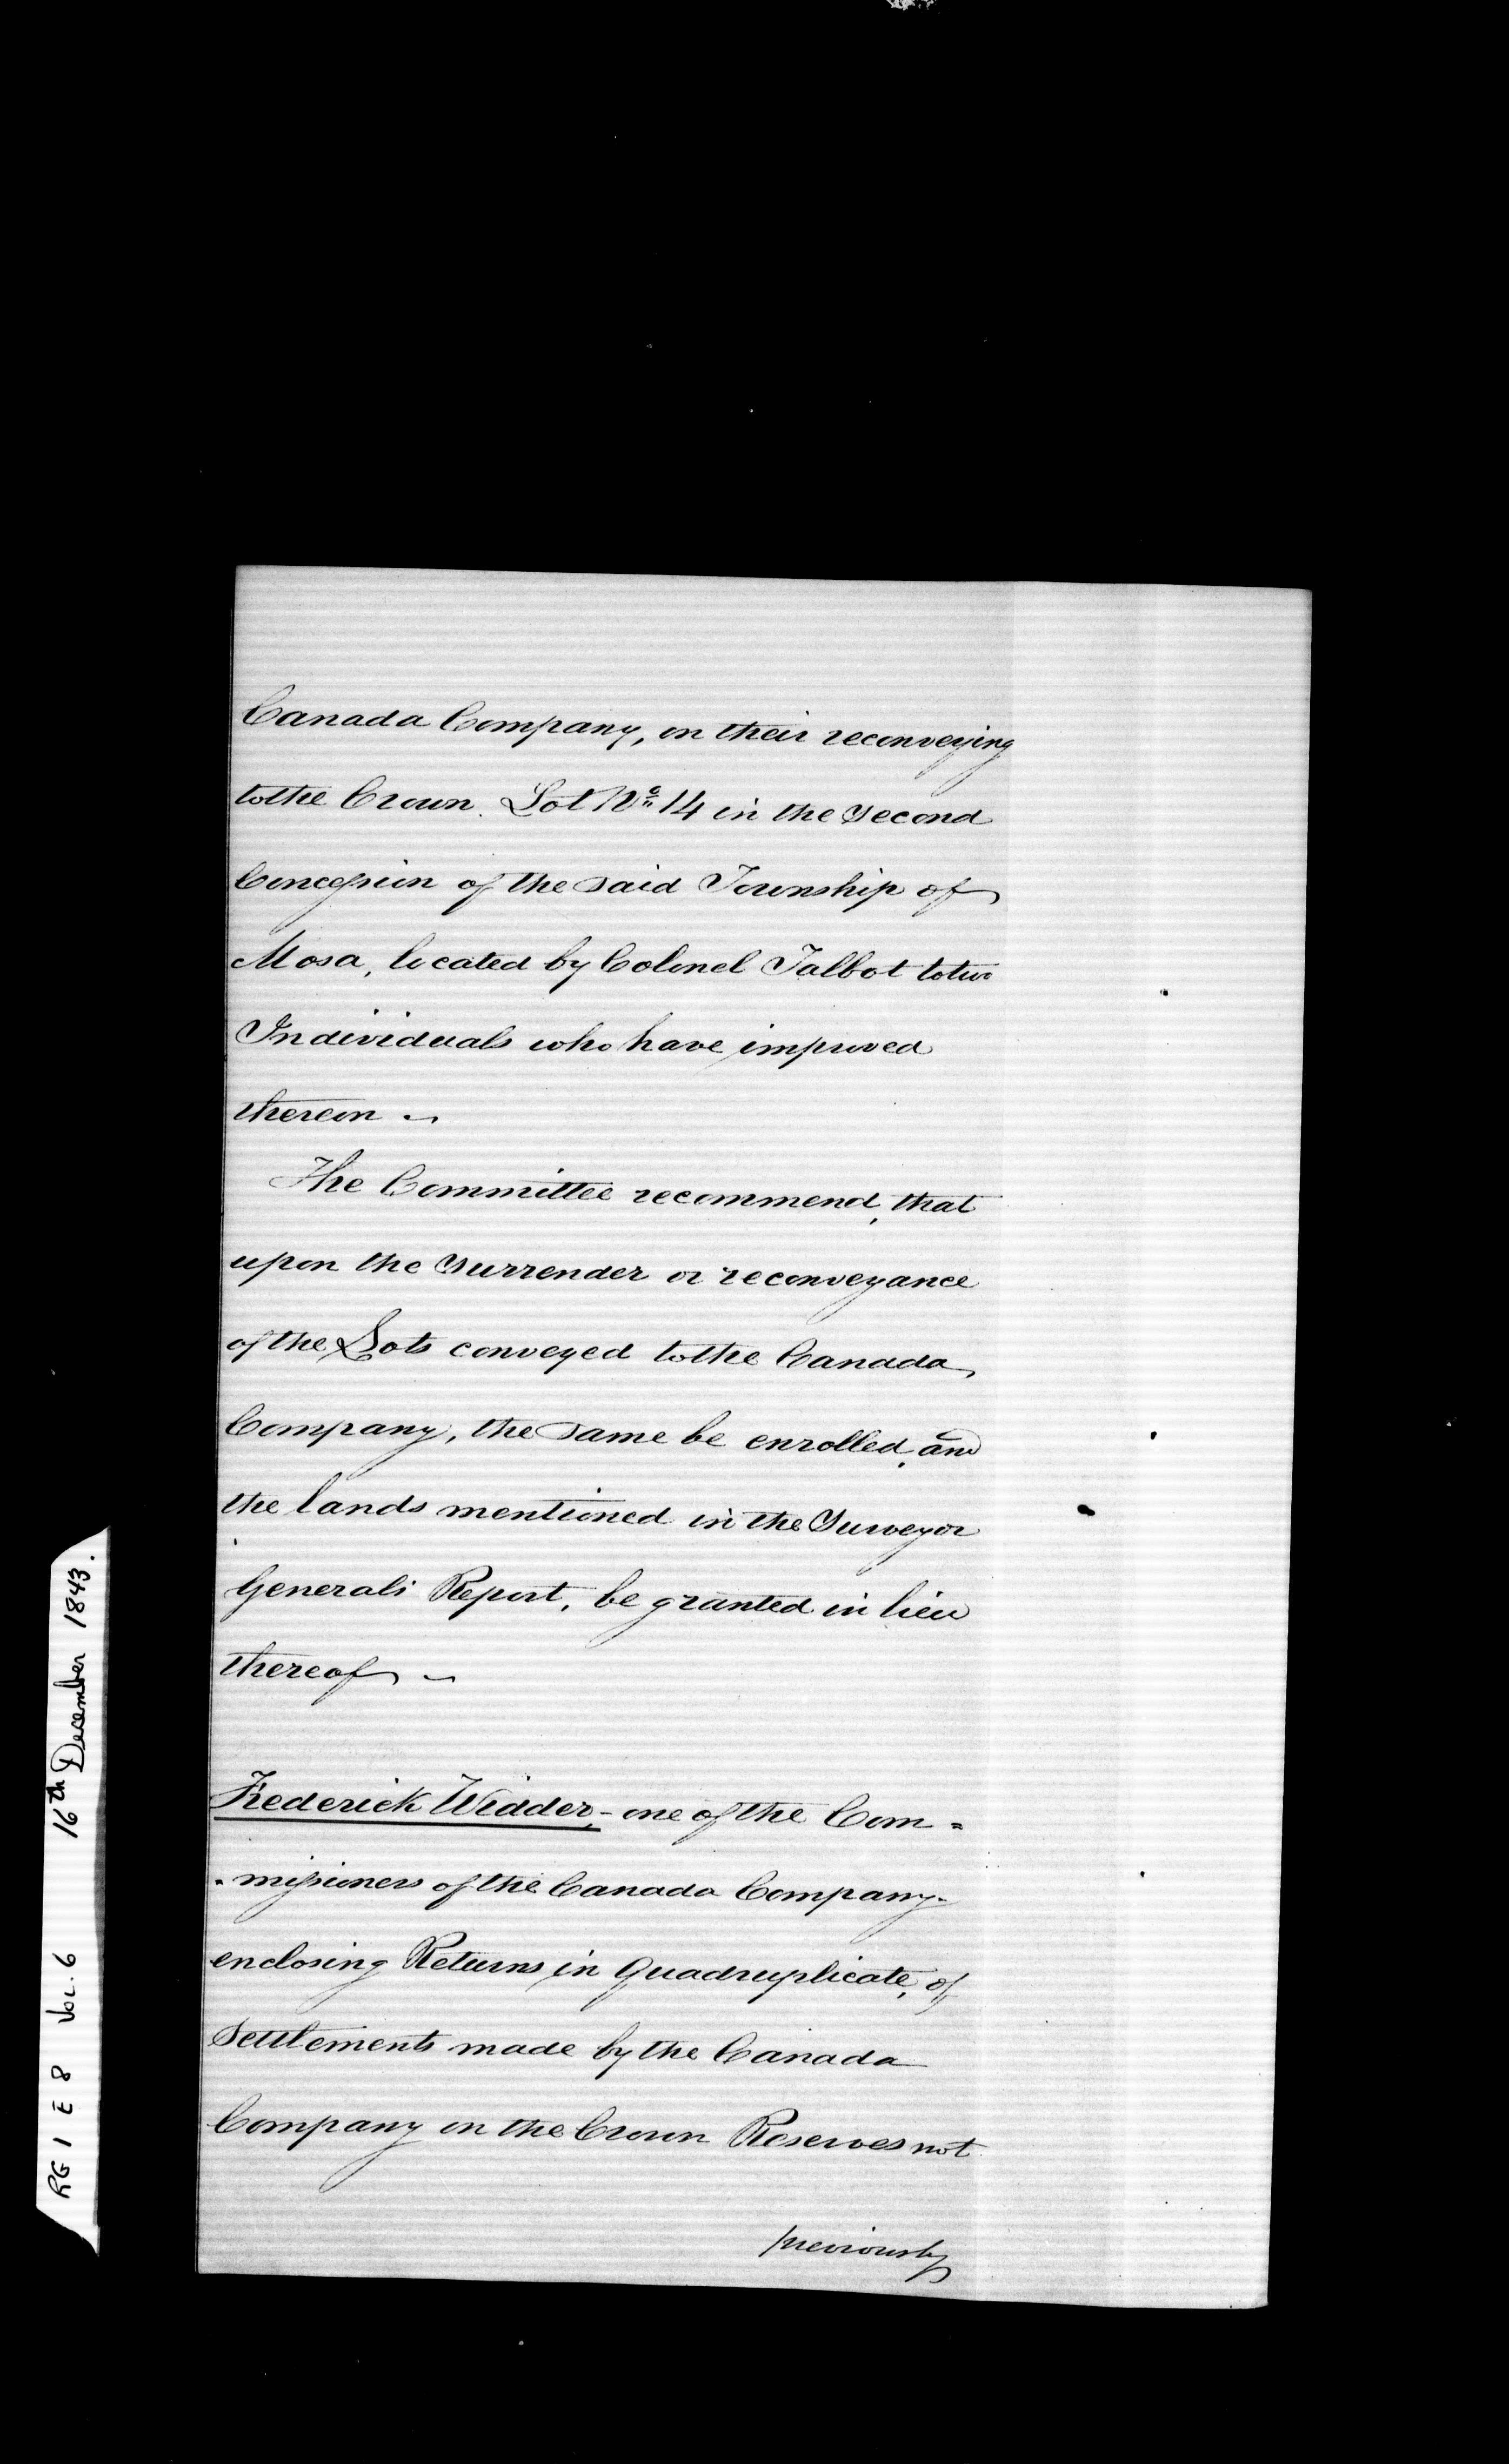 Canada Company, on their reconveying
to the Crown. Lot No. 14 in the Second
Concession of the said Township of
Mosa, located by Colonel Talbot to two
Individuals who have improved
thereon ~
The Committee recommend, that
upon the Surrender or reconveyance
of the Lots conveyed to the Canada
Company, the same be enrolled, and
the lands mentioned in the Surveyor
Generals Report, be granted in lieu
thereof ~
Frederick Widder, - one of the Com =
= missioners of the Canada Company -
enclosing Returns in Quadruplicate, of
Settlements made by the Canada
Company on the Crown Reserves not
previously
RG 1 E 8 Vol. 6 16th December 1843.